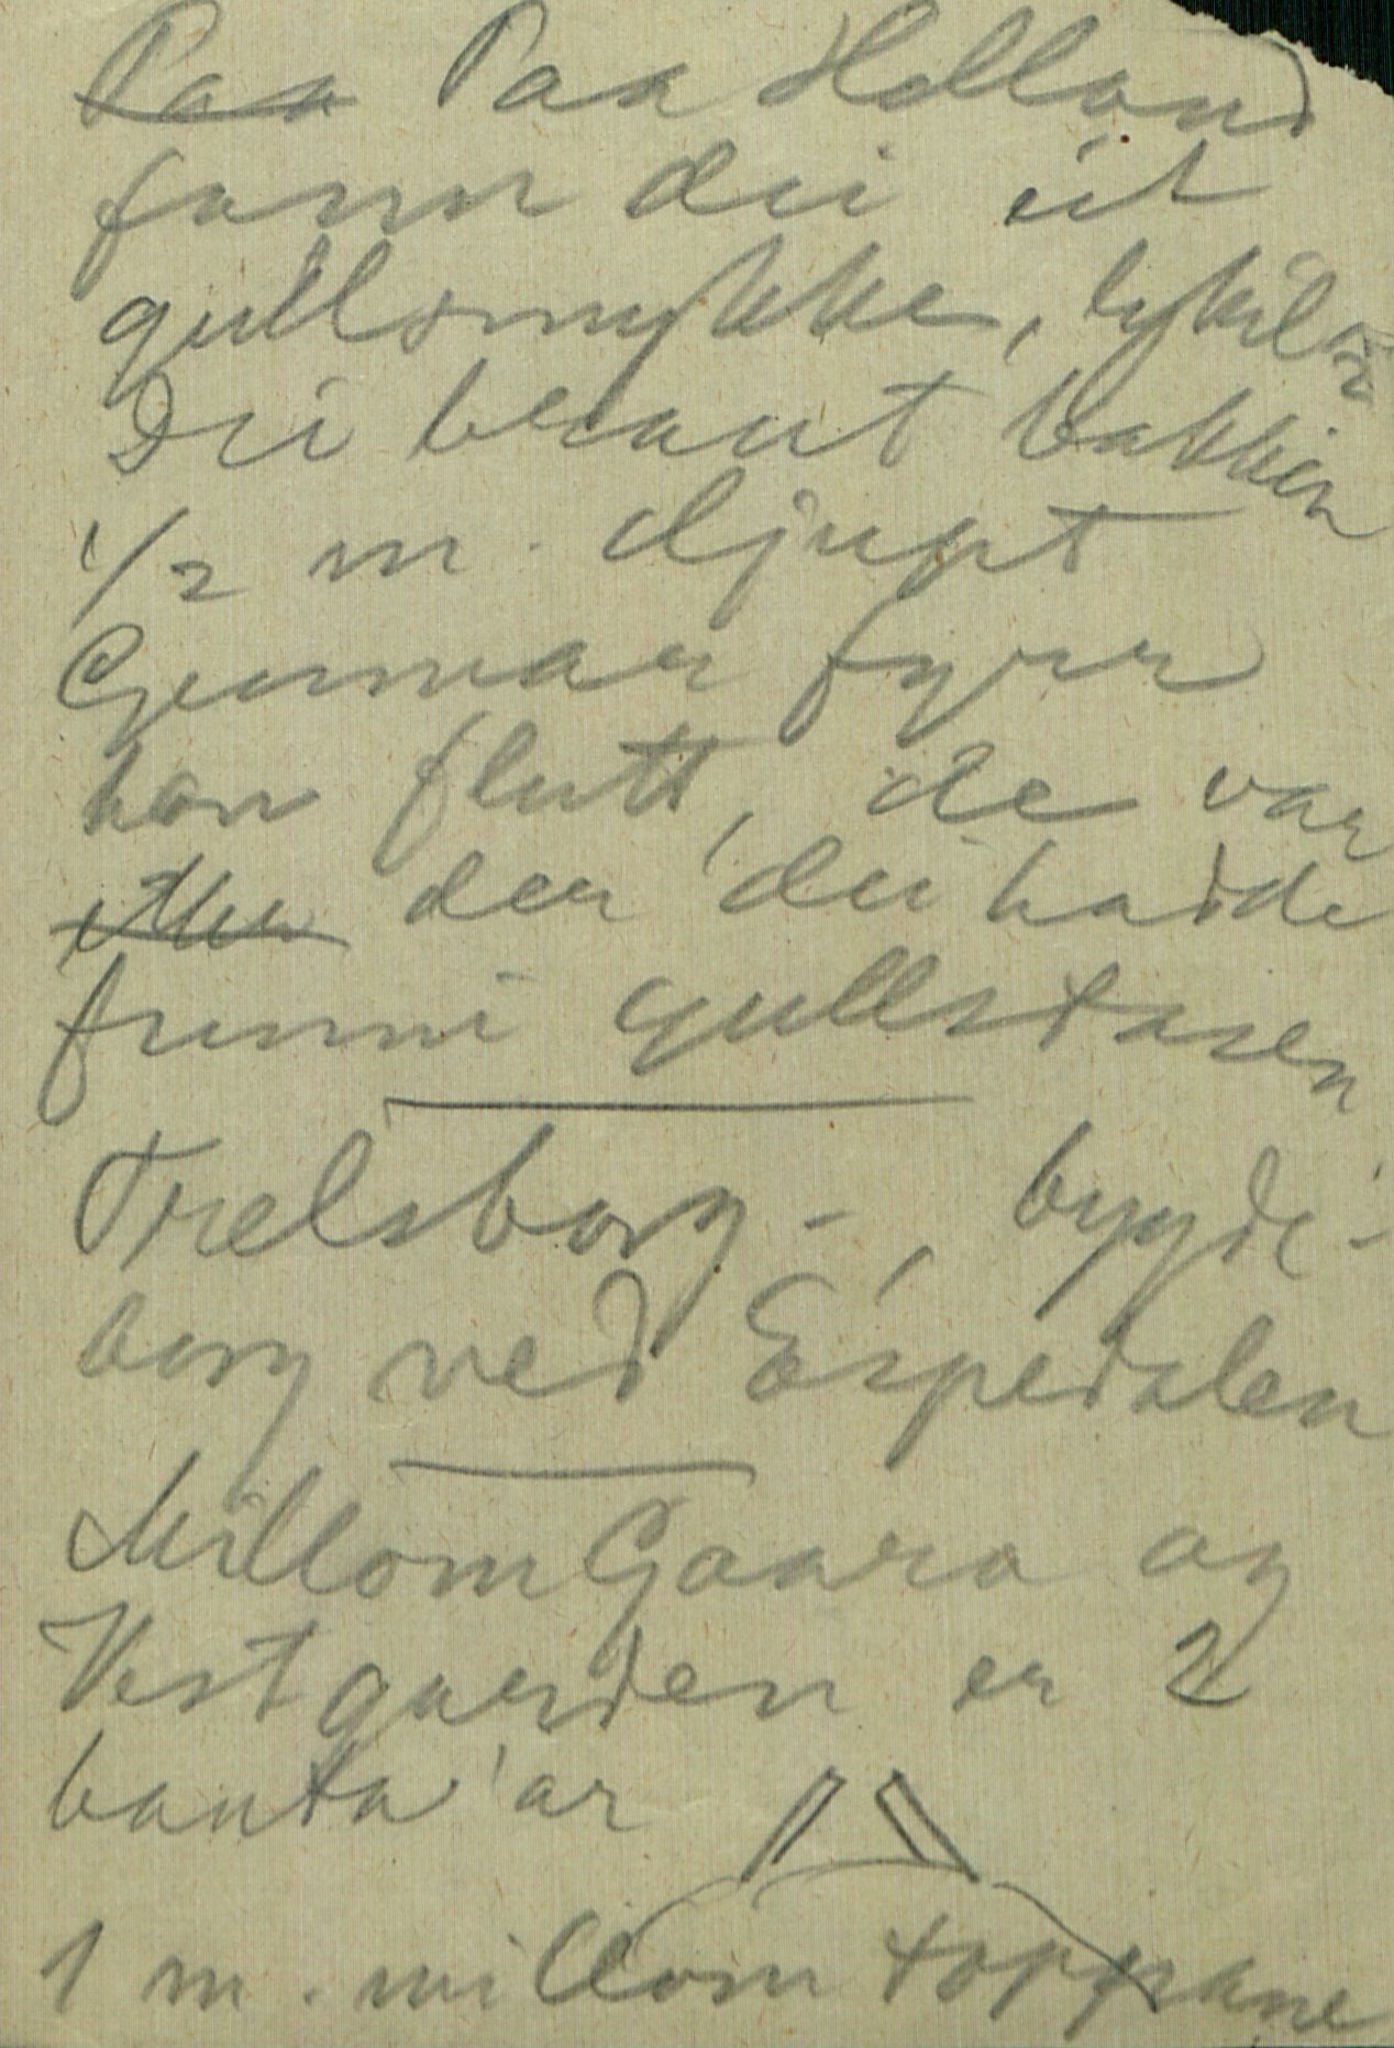 Paa Paa Helland
fann dei eit
gullsmykke,
Dei beraut bakken
1/2 m. djupt
Gunnar fyrr
han flutt, de var
der dei hadde
funni gullstasen
Trelsborg -, bygde-
borg ved Espedalen
Millom Gaara og
Vestgarden er 2
bauta'ar
1 m. millom toppane